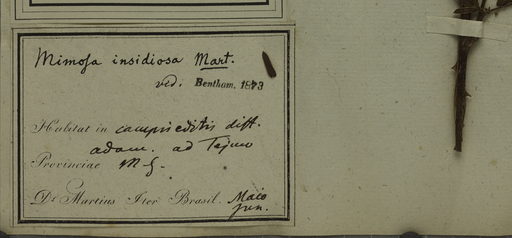 Mimosa insidiosa Mart.
ved. Bentham, 1873
Habitat in campis editis distr.
adam. ad Tejuco
Provinciae M G.
Dr Martius Iter Brasil. Maio
Jun.